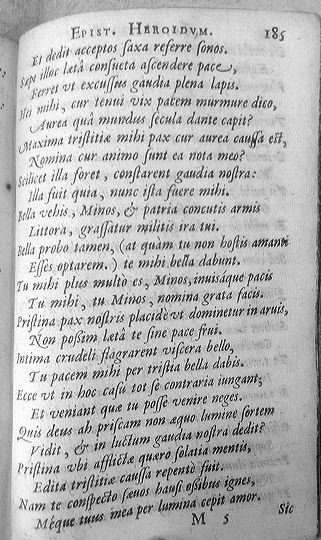 EPIST. HEROIDVM. 185
Et dedit acceptos saxa referre sonos.
Sæpe illuc lætâ consueta ascendere pace,
Ferret vt excussus gaudia plena lapis.
Hei mihi, cur tenui vix pacem murmure dico,
Aurea quâ mundus secula dante capit?
Maxima tristitiæ mihi pax cur aurea caussa est,
Nomina cur animo sunt ea nota meo?
Scilicet illa foret, constarent gaudia nostra:
Illa fuit quia, nunc ista fuere mihi.
Bella vehis, Minos, & patria concutis armis
Littora, grassatur militis ira tui.
Bella probo tamen, (at quàm tu non hostis amanti
Esses optarem.) te mihi bella dabunt.
Tu mihi plus multò es, Minos, inuisáque pacis
Tu mihi, tu Minos, nomina grata facis.
Pristina pax nostris placidè vt dominetur in aruis,
Non possim lætâ te sine pace frui.
Intima crudeli flagrarent viscera bello,
Tu pacem mihi per tristia bella dabis.
Ecce vt in hoc casu tot se contraria iungant,
Et veniant quæ tu posse venire neges.
Quis deus ah priscam non æquo lumine sortem
Vidit, & in luctum gaudia nostra dedit?
Pristina vbi afflictæ quæro solatia mentis,
Edita tristitiæ caussa repentè fuit.
Nam te conspecto sæuos hausi ossibus ignes,
Méque tuus mea per lumina cepit amor.
M 5 Sic